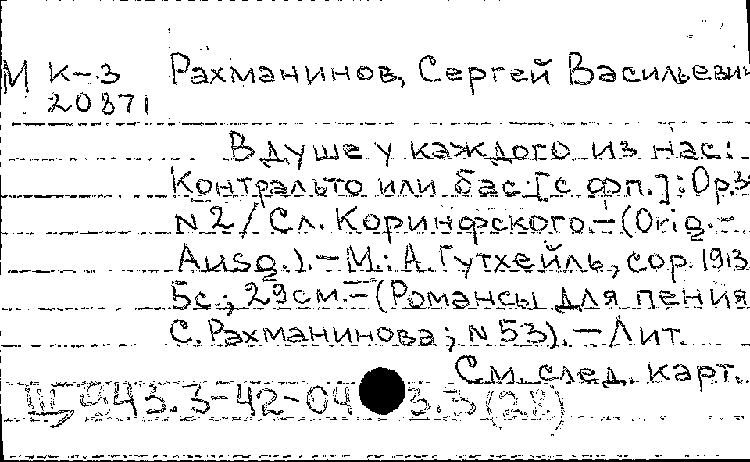 М К-3 Рахманинов, Сергей Васильевич
20871
В душе у каждого из нас:
Контральто или бас [с фп.]: Op.3
N 2 / Сл. Коринфского. – (Orig.-
Ausg.). – М.: А. Гутхейль, cop. 1913
5с.; 29см. – (Романсы для пения
С. Рахманинова; N 53). – Лит.
См. след. карт.
43.3-42-04 3.3 (28)